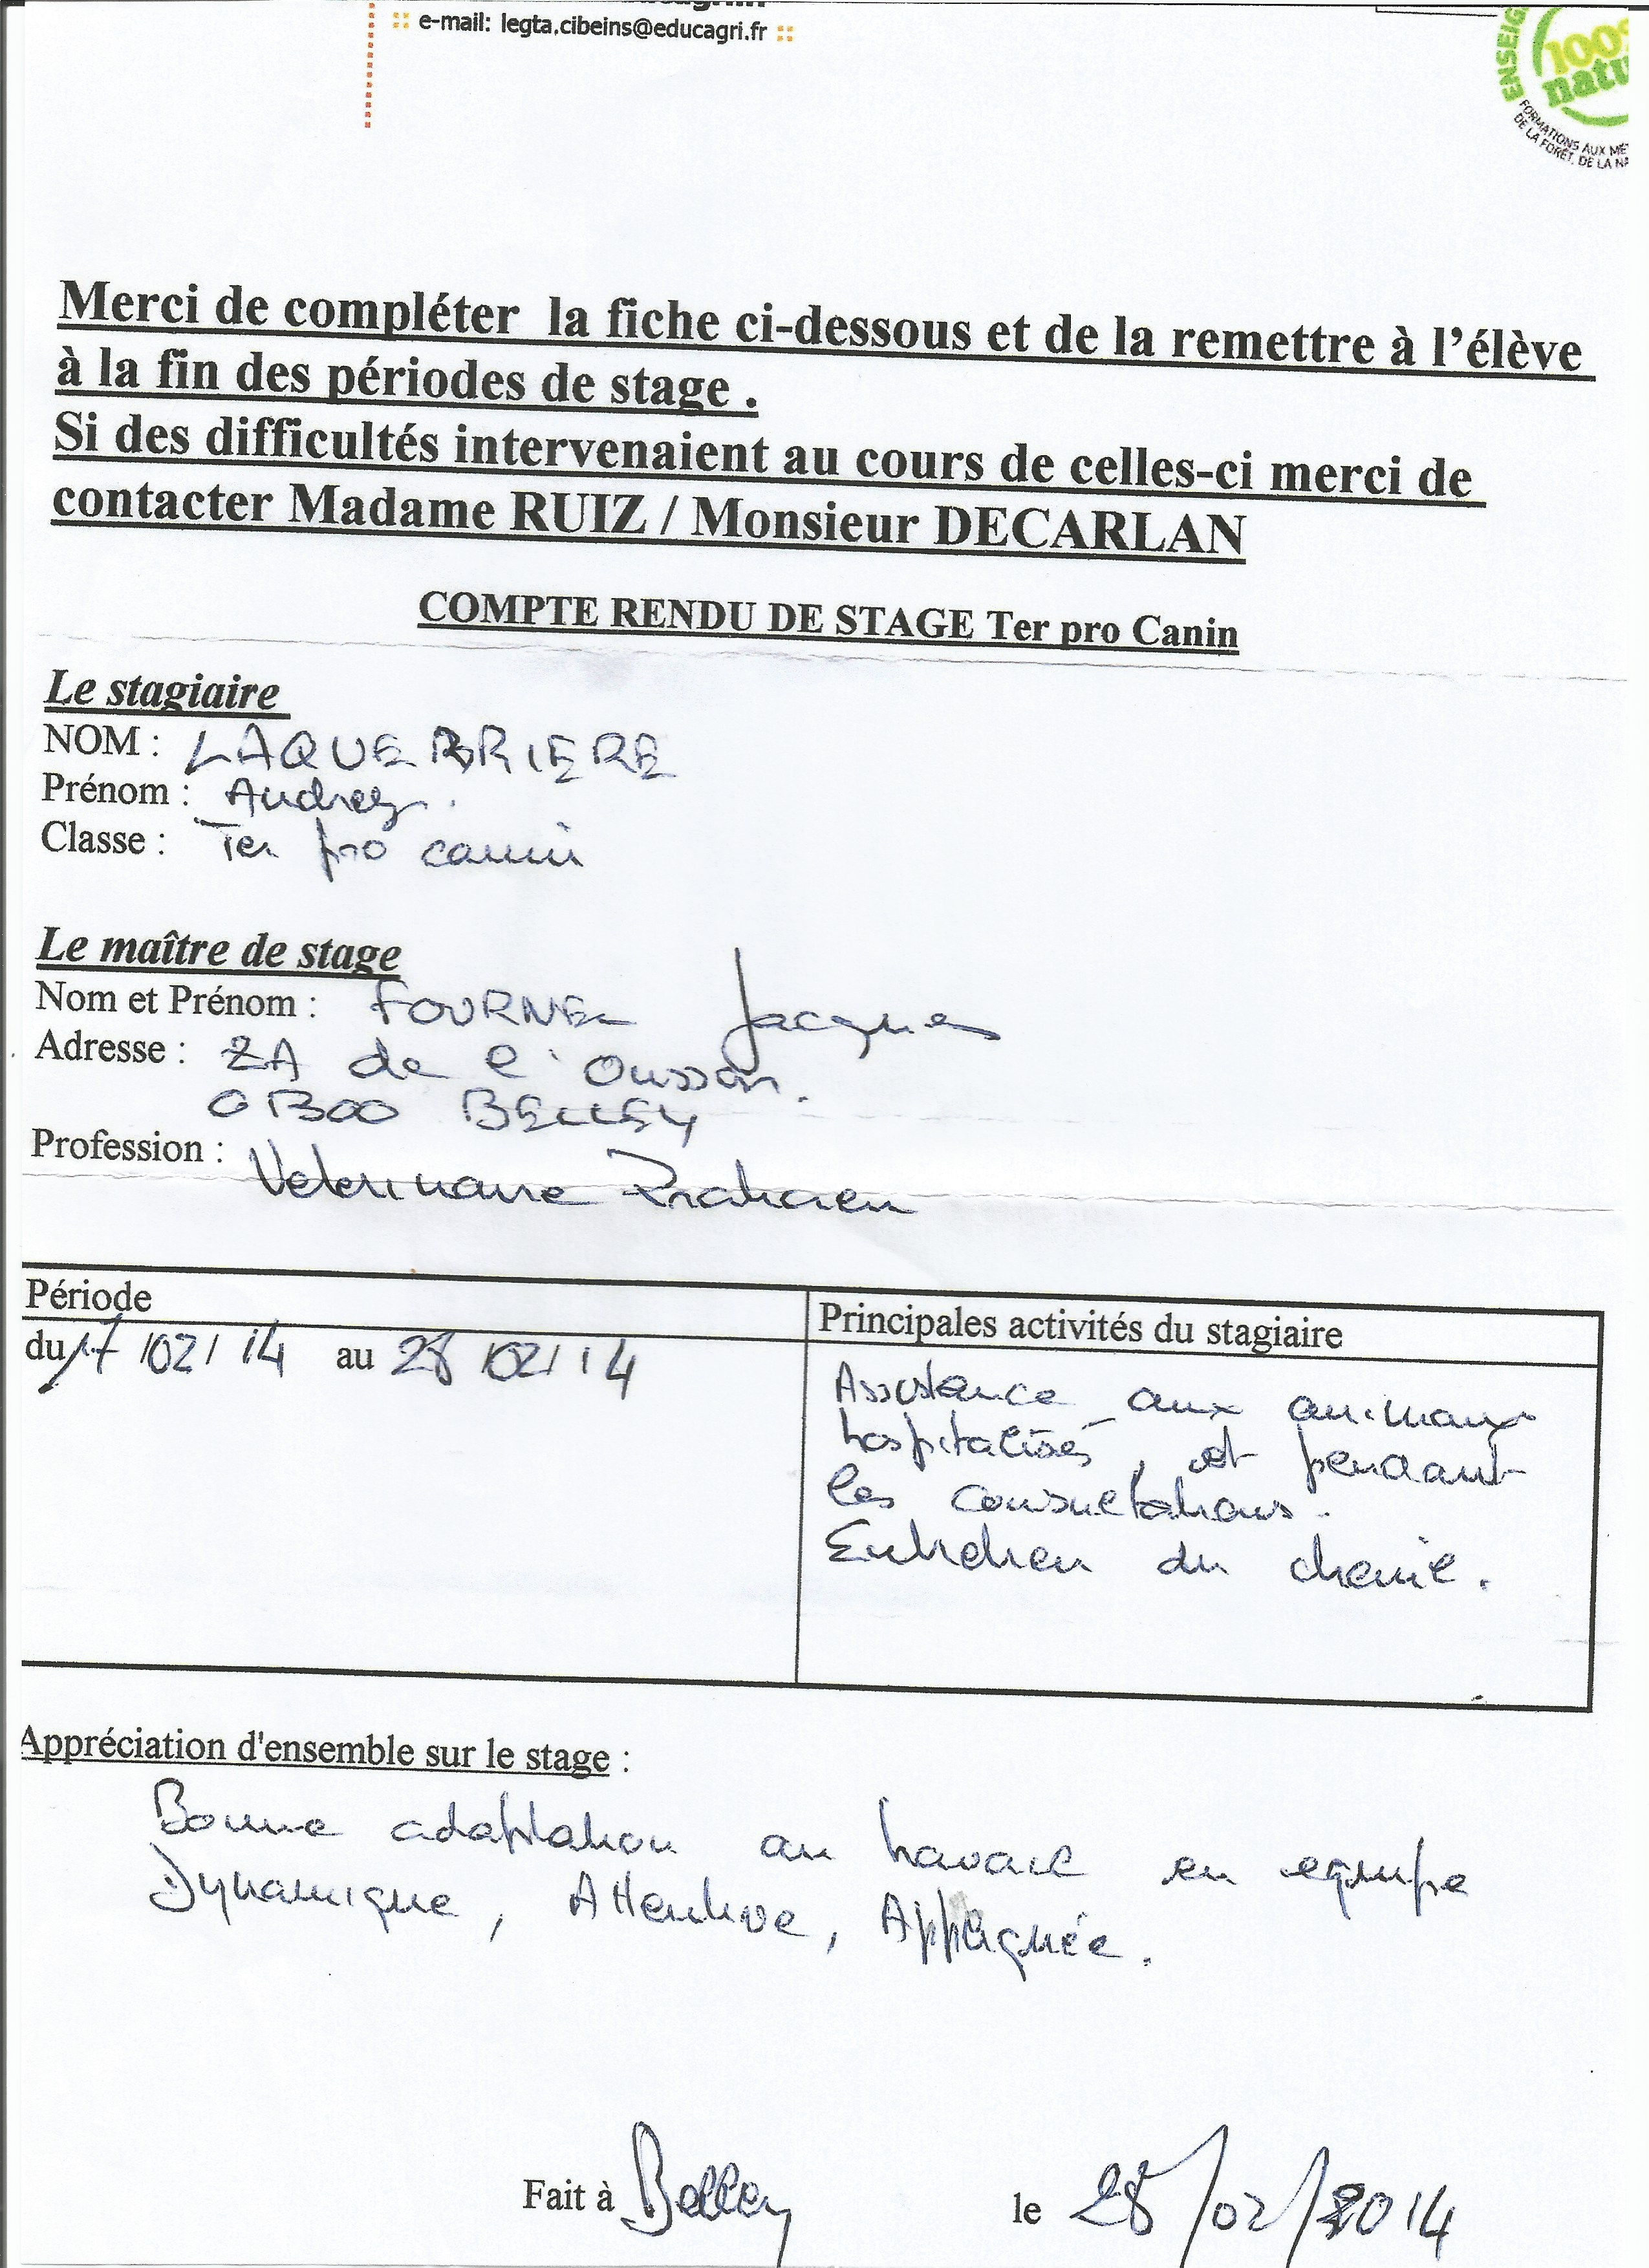 e-mail: legta.cibeins@educagri.fr
ENSEIG
100%
natu
FORMATIONS AUX MÉ
DE LA FORÊT, DE LA NA
Merci de compléter la fiche ci-dessous et de la remettre à l'élève
à la fin des périodes de stage .
Si des difficultés intervenaient au cours de celles-ci merci de
contacter Madame RUIZ / Monsieur DECARLAN
COMPTE RENDU DE STAGE Ter pro Canin
Le stagiaire
NOM : LAQUEBRIERE
Prénom : Audrey.
Classe : Ter pro canin
Le maître de stage
Nom et Prénom : FOURNEL Jacques
Adresse : ZA de l'Ousson.
01300 BELLEY
Profession : Veterinaire Praticien
Période
du 17/02/14 au 28/02/14
Principales activités du stagiaire
Assistance aux animaux
hospitalisés, et pendant
les consultations.
Entretien du chenil.
Appréciation d'ensemble sur le stage :
Bonne adaptation au travail en equipe
Dynamique, Attentive, Appliquée.
Fait à Belley le 28/02/2014